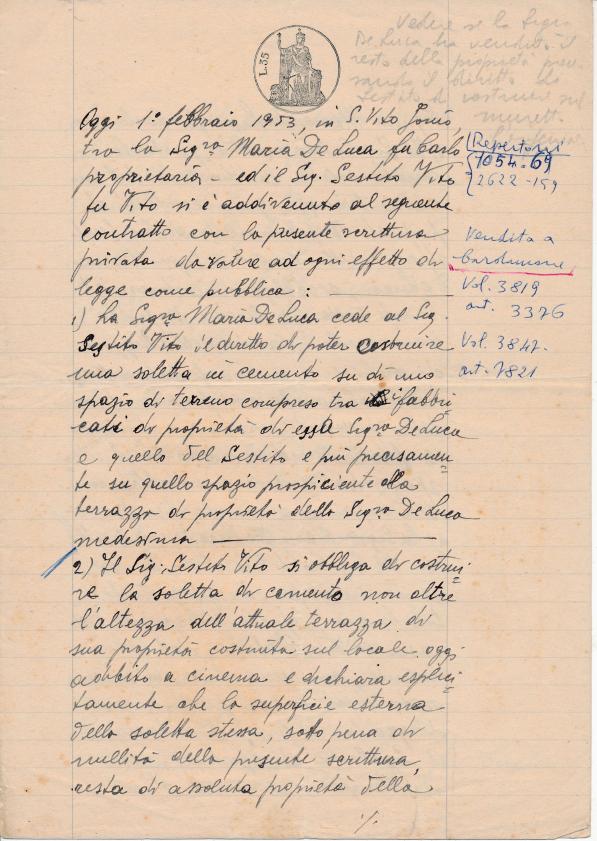 L.35
Vedere se la Sigra
De Luca ha venduto il
resto della proprietà
il diritto
Sestito di costruire sul
muretto
Oggi 1° febbraio 1953, in S. Vito Jonio,
tra la Sigra Maria De Luca fu Carlo
proprietaria - ed il Sig. Sestito Vito
fu Vito si è addivenuto al seguente
contratto con la presente scrittura
privata da valere ad ogni effetto di
legge come pubblica :
1) La Sigra Maria De Luca cede al Sig.
Sestito Vito il diritto di poter costruire
una soletta in cemento su di uno
spazio di terreno compreso tra i fabbri-
cati di proprietà di essa Sigra De Luca
e quello del Sestito e più precisamen-
te su quello spazio prospiciente alla
terrazza di proprietà della Sigra De Luca
medesima
2) Il Sig. Sestito Vito si obbliga di costrui-
re la soletta di cemento non oltre
l'altezza dell'attuale terrazza di
sua proprietà costruita sul locale oggi
adibito a cinema e dichiara esplici-
tamente che la superficie esterna
della soletta stessa, sotto pena di
nullità della presente scrittura,
resta di assoluta proprietà della
./.
Repertori
7054-69
2622-159
Vendita a
Vol. 3819
art. 3376
Vol. 3847-
art. 7821